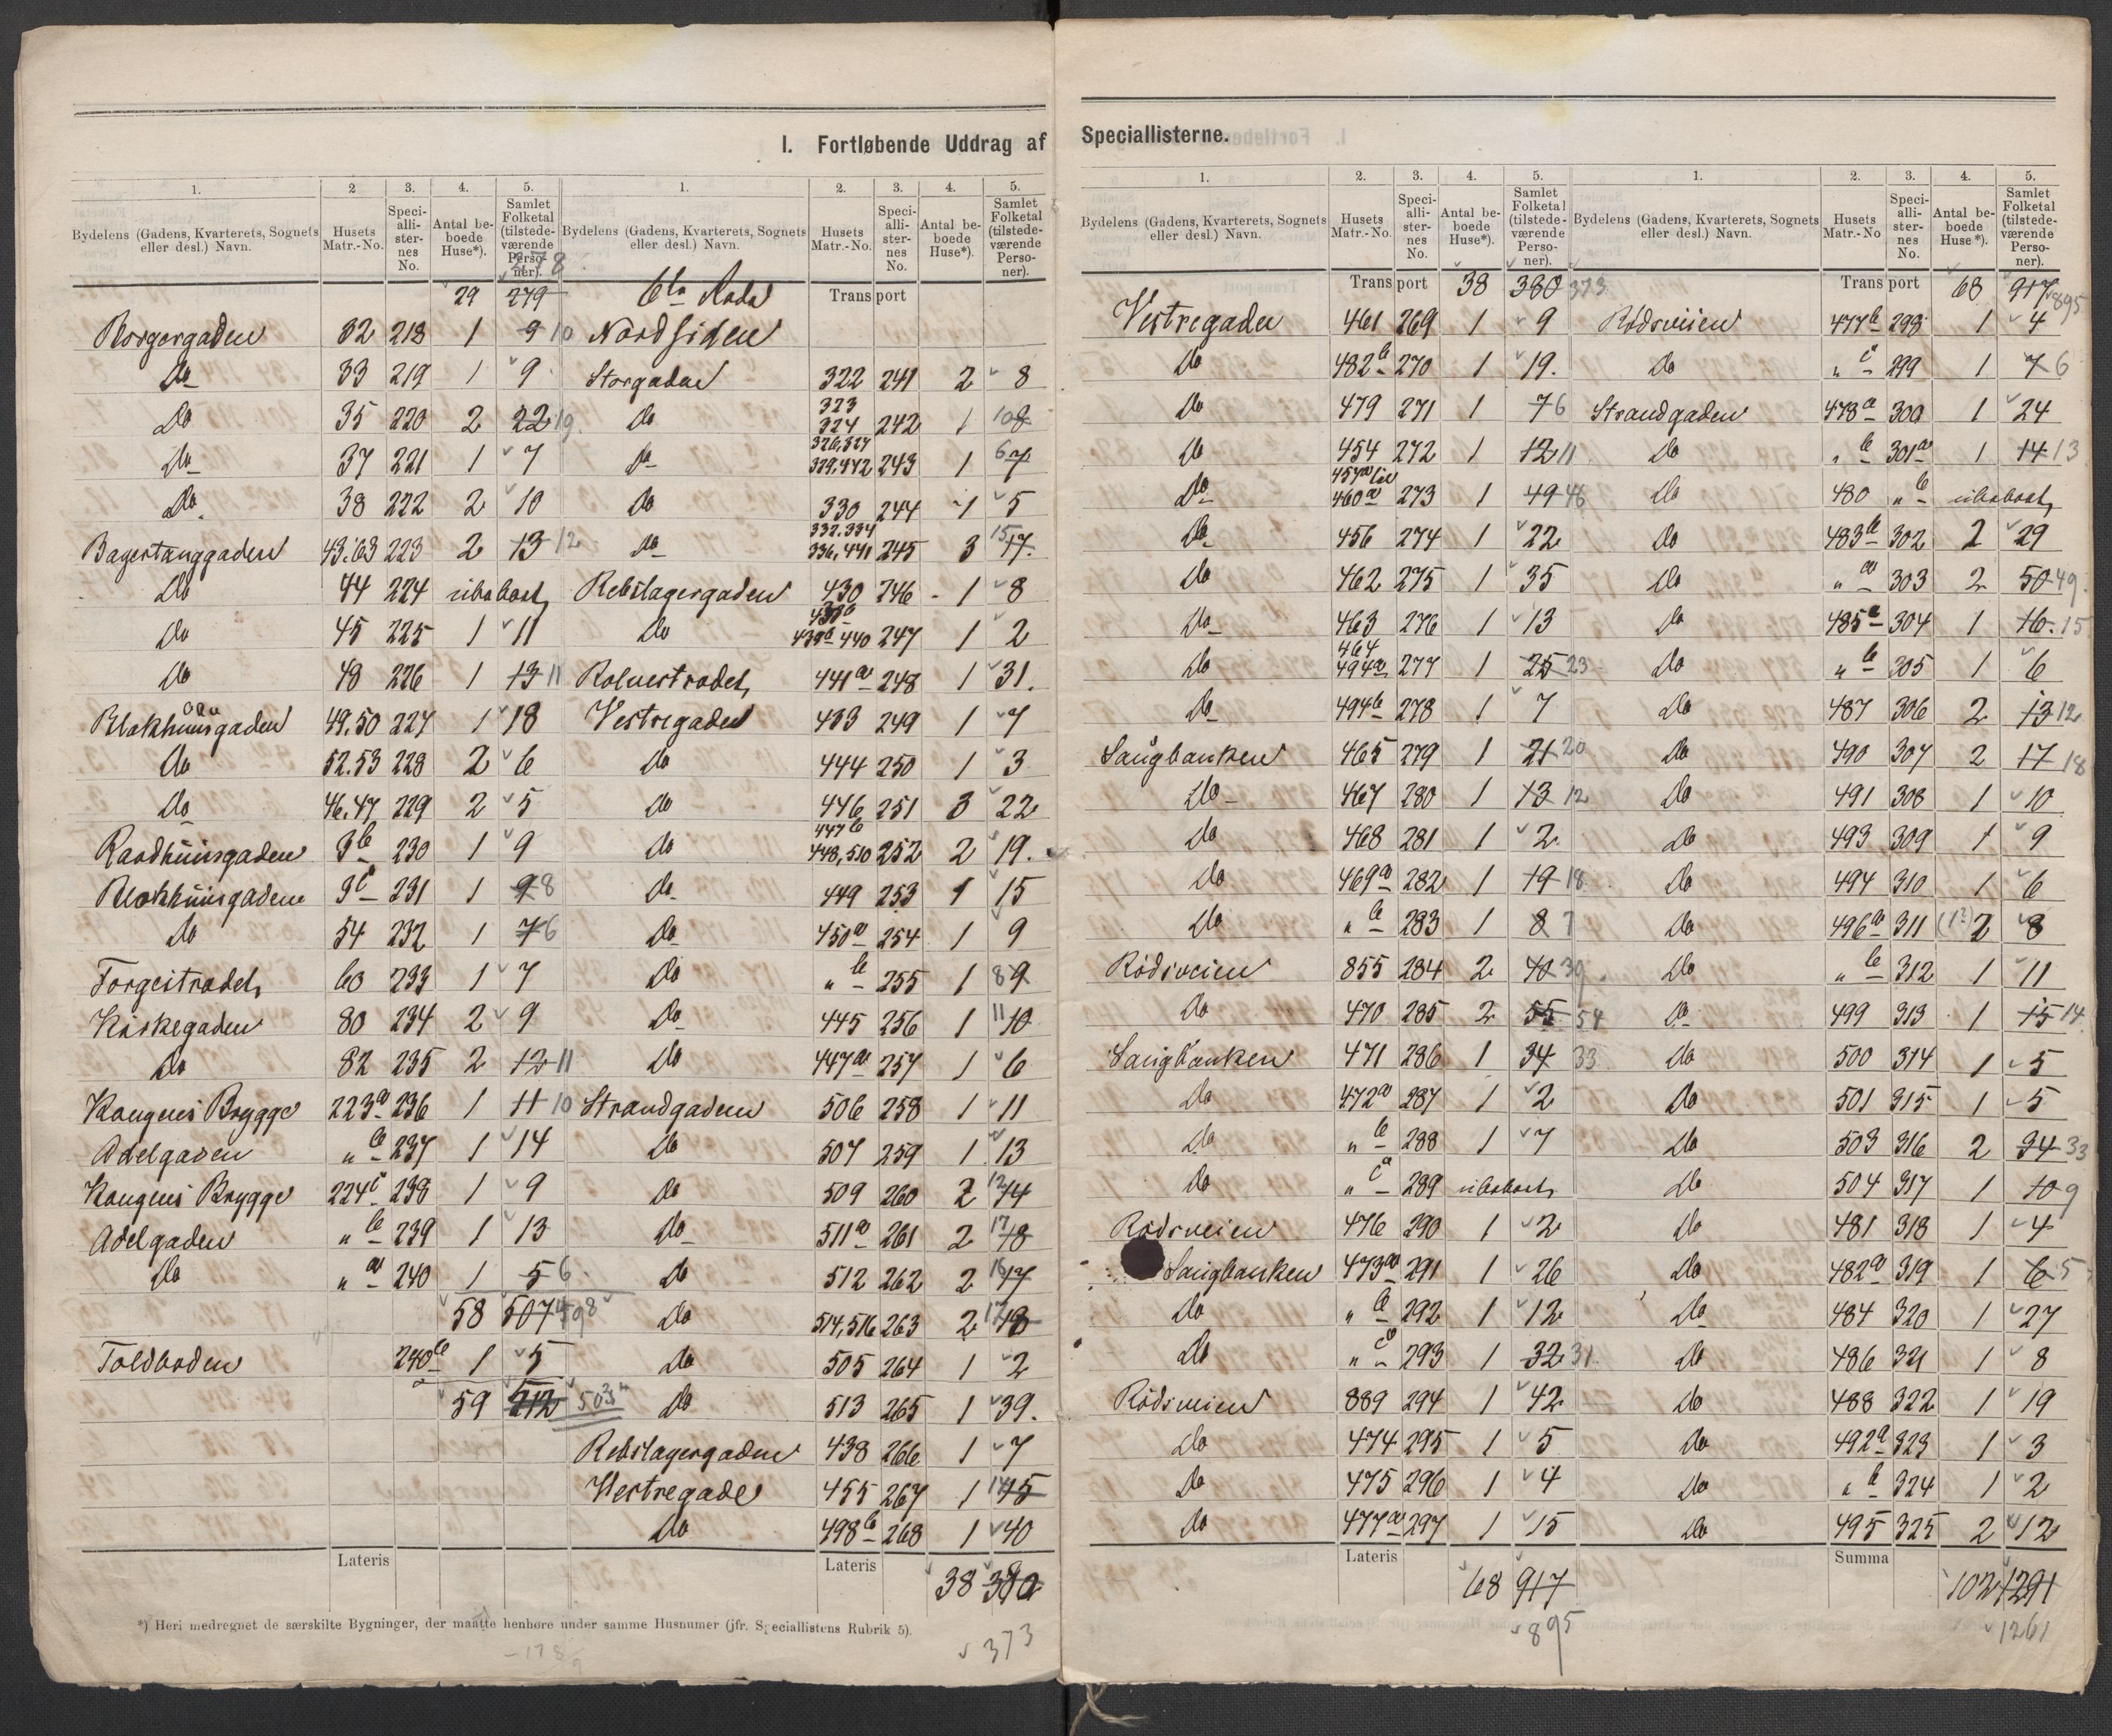 I. Fortløbende Uddrag af Speciallisterne.
1. 2 3. 4. 5. 1. 2. 3. 4. 5.
Bydelens (Gadens, Kvarterets, Sognets eller desl.) Navn. Husets Matr.-No. Speciallisternes No. Antal beboede Huse*). Samlet Folketal (tilstedeværende Personer). Bydelens (Gadens, Kvarterets, Sognets eller desl.) Navn. Husets Matr.-No. Speciallisternes No. Antal beboede Huse*). Samlet Folketal (tilstedeværende Personer).
29 279 278 6te Rode Transport
Borgergaden 32 218 1 9 10 Nordsiden
Do 33 219 1 9 Storgaden 322 241 2 8
Do 35 220 2 22 19 Do 323 324 242 1 10 8
Do 37 221 1 7 Do 326,327 329.442 243 1 6 7
Do 38 222 2 10 Do 330 244 1 5
Bagerstanggaden 43.63 223 2 13 12 Do 332.334 336,441 245 3 15 17
Do 44 224 ubeboet Rebslagergaden 430 246 1 8
Do 45 225 1 11 Do 439b 440 247 1 2
Do 48 226 1 13 11 Rolvestrædet 441a 248 1 31.
Blokhuusgaden 49.50 227 1 18 Vestregaden 433 249 1 7
Do 52.53 228 2 6 Do 444 250 1 3
Do 46.47 229 2 5 Do 446 251 3 22
Raadhuusgaden 3b 230 1 9 Do 447b 448,510 252 2 19.
Blokhuusgaden 3c 231 1 9 8 Do 449 253 1 15
Do 54 232 1 7 6 Do 450a 254 1 9
Torgestrædet 60 233 1 7 Do " b 255 1 8 9
Kirkegaden 80 234 2 9 Do 445 256 1 11 10
Do 82 235 2 12 11 Do 447a 257 1 6
Kongens Brygge 223a 236 1 11 10 Strandgaden 506 258 1 11
Adelgaden " b 237 1 14 Do 507 259 1 13
Kongens Brygge 224c 238 1 9 Do 509 260 2 12 14
Adelgaden " b 239 1 13 Do 511a 261 2 17 18
Do " a 240 1 5 6 Do 512 262 2 16 17
58 507 498 Do 514,516 263 2 17 18
Toldboden 240b 1 5 Do 505 264 1 2
59 512 503 Do 513 265 1 39.
Rebslagergaden 438 266 1 7
Vestregade 455 267 1 14 15
Do 498b 268 1 40
Lateris Lateris 38 380
*) Heri medregnet de særskilte Bygninger, der maatte henhøre under samme Husnumer (jfr. Speciallistens Rubrik 5).
373
1. 2. 3. 4. 5. 1. 2. 3. 4. 5.
Bydelens (Gadens, Kvarterets, Sognets eller desl.) Navn. Husets Matr.-No. Speciallisternes No. Antal beboede Huse*). Samlet Folketal (tilstedeværende Personer). Bydelens (Gadens, Kvarterets, Sognets eller desl.) Navn. Husets Matr.-No. Speciallisternes No. Antal beboede Huse*). Samlet Folketal (tilstedeværende Personer).
Transport 38 380 373 Transport 68 917 895
Vestregaden 461 269 1 9 Rødsveien 477b 298 1 4
Do 482b 270 1 19. Do " c 299 1 7 6
Do 479 271 1 7 6 Strandgaden 478a 300 1 24
Do 454 272 1 12 11 Do " b 301a 1 14 13
Do 457a 460a 273 1 49 46 Do 480 " b ubeboet
Do 456 274 1 22 Do 483b 302 2 29
Do 462 275 1 35 Do " a 303 2 50 49
Do 463 276 1 13 Do 485a 304 1 16 15
Do 464 494a 277 1 25 23 Do " b 305 1 6
Do 494b 278 1 7 Do 487 306 2 13 12
Saugbanken 465 279 1 21 20 Do 490 307 2 17 18
Do 467 280 1 13 12 Do 491 308 1 10
Do 468 281 1 2 Do 493 309 1 9
Do 469a 282 1 19 18 Do 494 310 1 6
Do " b 283 1 8 7 Do 496a 311 (1?) 2 8
Rödsveien 855 284 2 40 39 Do " b 312 1 11
Do 470 285 2 55 54 Do 499 313 1 15 14
Saugbanken 471 286 1 34 33 Do 500 314 1 5
Do 472a 287 1 2 Do 501 315 1 5
Do " b 288 1 7 Do 503 316 2 34 33
Do " c 289 ubeboet Do 504 317 1 10 9
Rödsveien 476 290 1 2 Do 481 318 1 4
Saugbanken 473a 291 1 26 Do 482a 319 1 6 5
Do " b 292 1 12 Do 484 320 1 27
Do " c 293 1 32 31 Do 486 321 1 8
Rödsveien 889 294 1 42 Do 488 322 1 19
Do 474 295 1 5 Do 492a 323 1 3
Do 475 296 1 4 Do " b 324 1 2
Do 477a 297 1 15 Do 495 325 2 12
Lateris 68 917 Summa 102 1291
895 1261